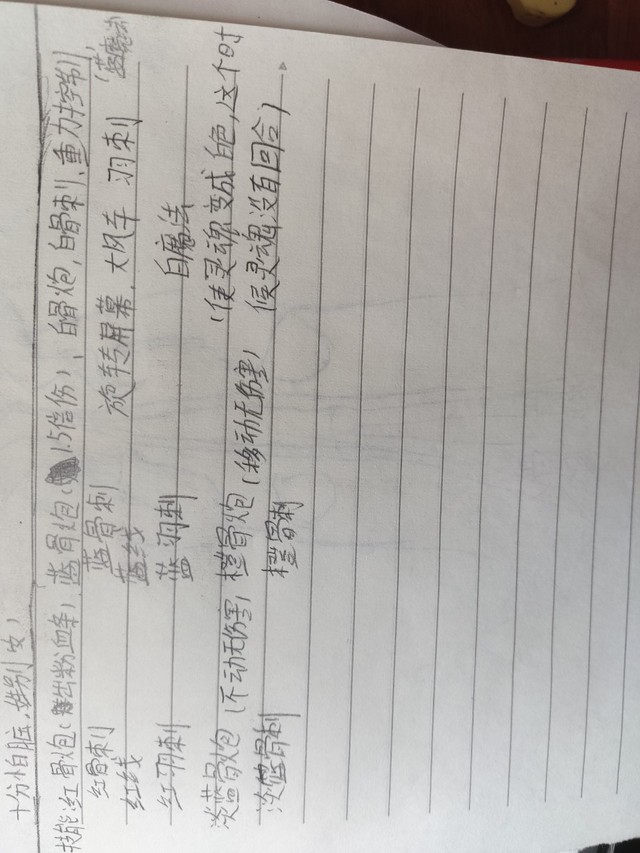 十分怕脏,姓别女,
技能:红骨炮(出粉血条),蓝骨炮(1.5倍伤)、白骨炮,白骨刺、重力控制(蓝魔法),
红骨刺 蓝骨刺 旋转屏幕、大风车 羽刺
红线 蓝线
红羽刺 蓝羽刺 白魔法
淡蓝骨炮(不动无伤害),橙骨炮(移动无伤害) (使灵魂变成白色,这个时
淡蓝骨刺 橙骨刺 候灵魂没有回合)